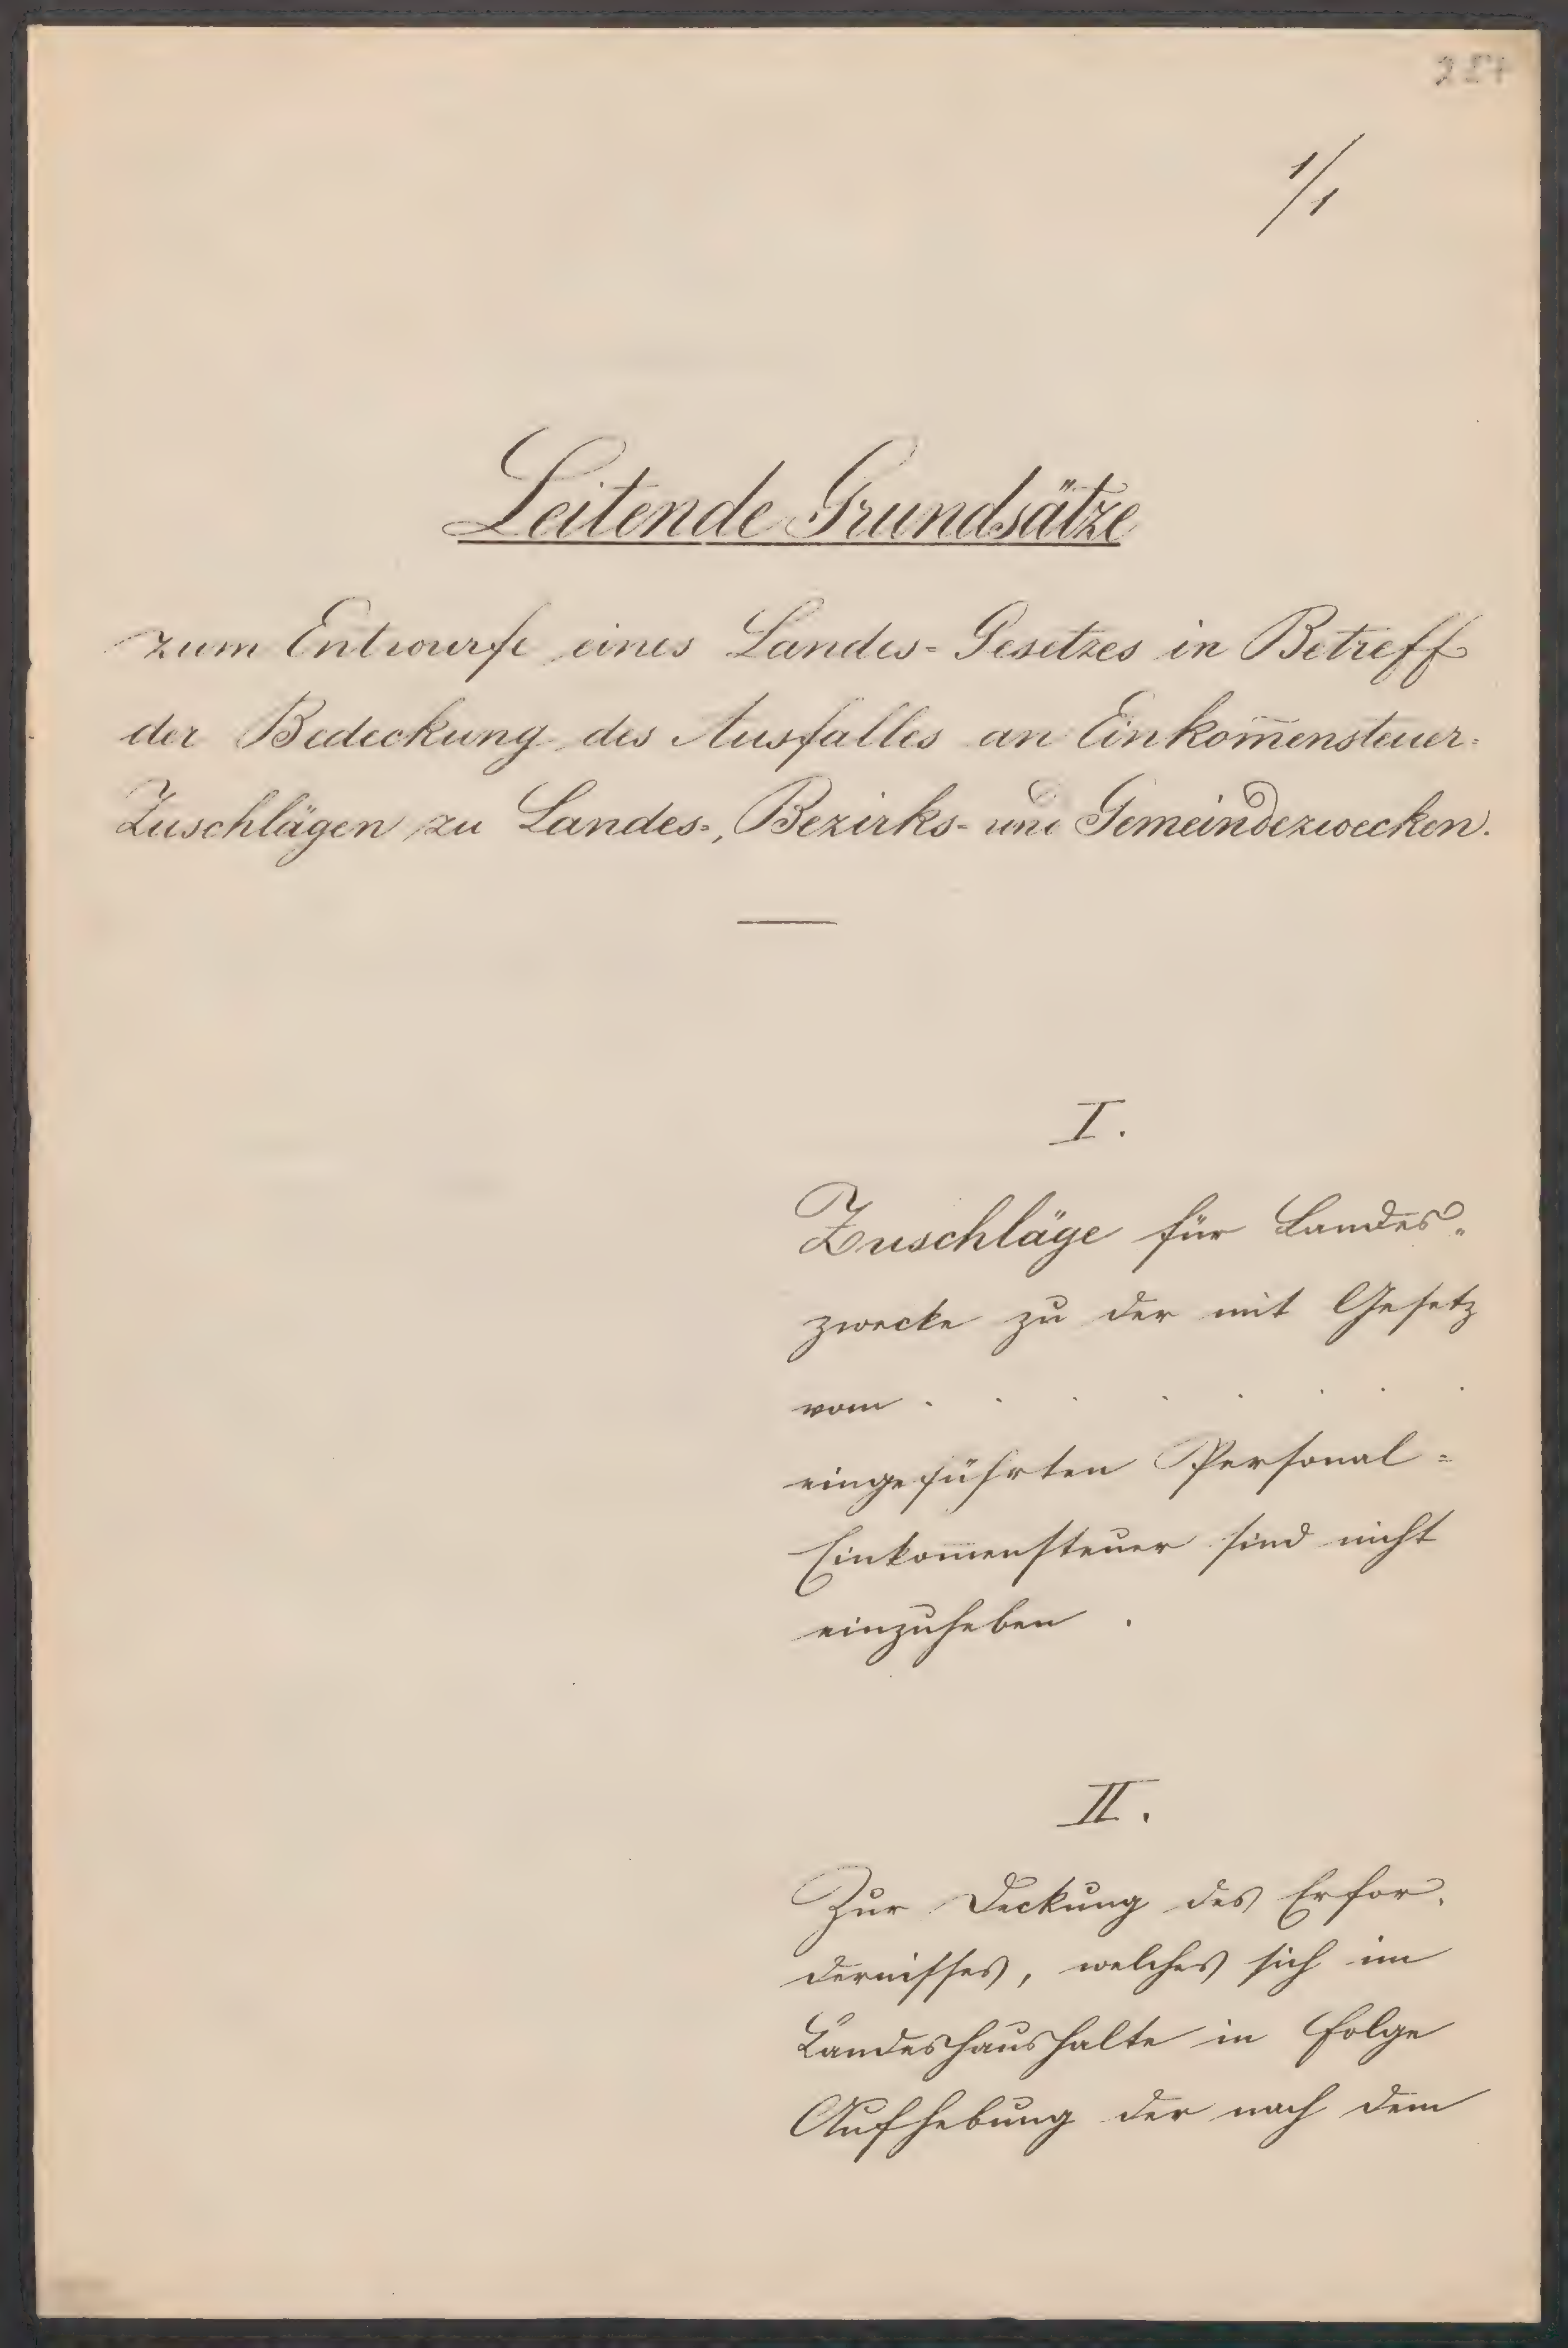 1/1
Leitende Grundsätze
zum Entwurfe eines Landes-Gesetzes in Betreff
der Bedeckung des Ausfalles an Einkom̅ensteuer-
Zuschlägen zu Landes-, Bezirks- und Gemeindezwecken.
I.
Zuschläge für Landes-
zwecke zu der mit Gesetz
vom . . . . . . . .
eingeführten Personal-
Einkom̅ensteuer sind nicht
einzuheben .
II.
Zur Deckung des Erfor-
dernisses, welches sich im
Landeshaushalte in Folge
Aufhebung der nach dem